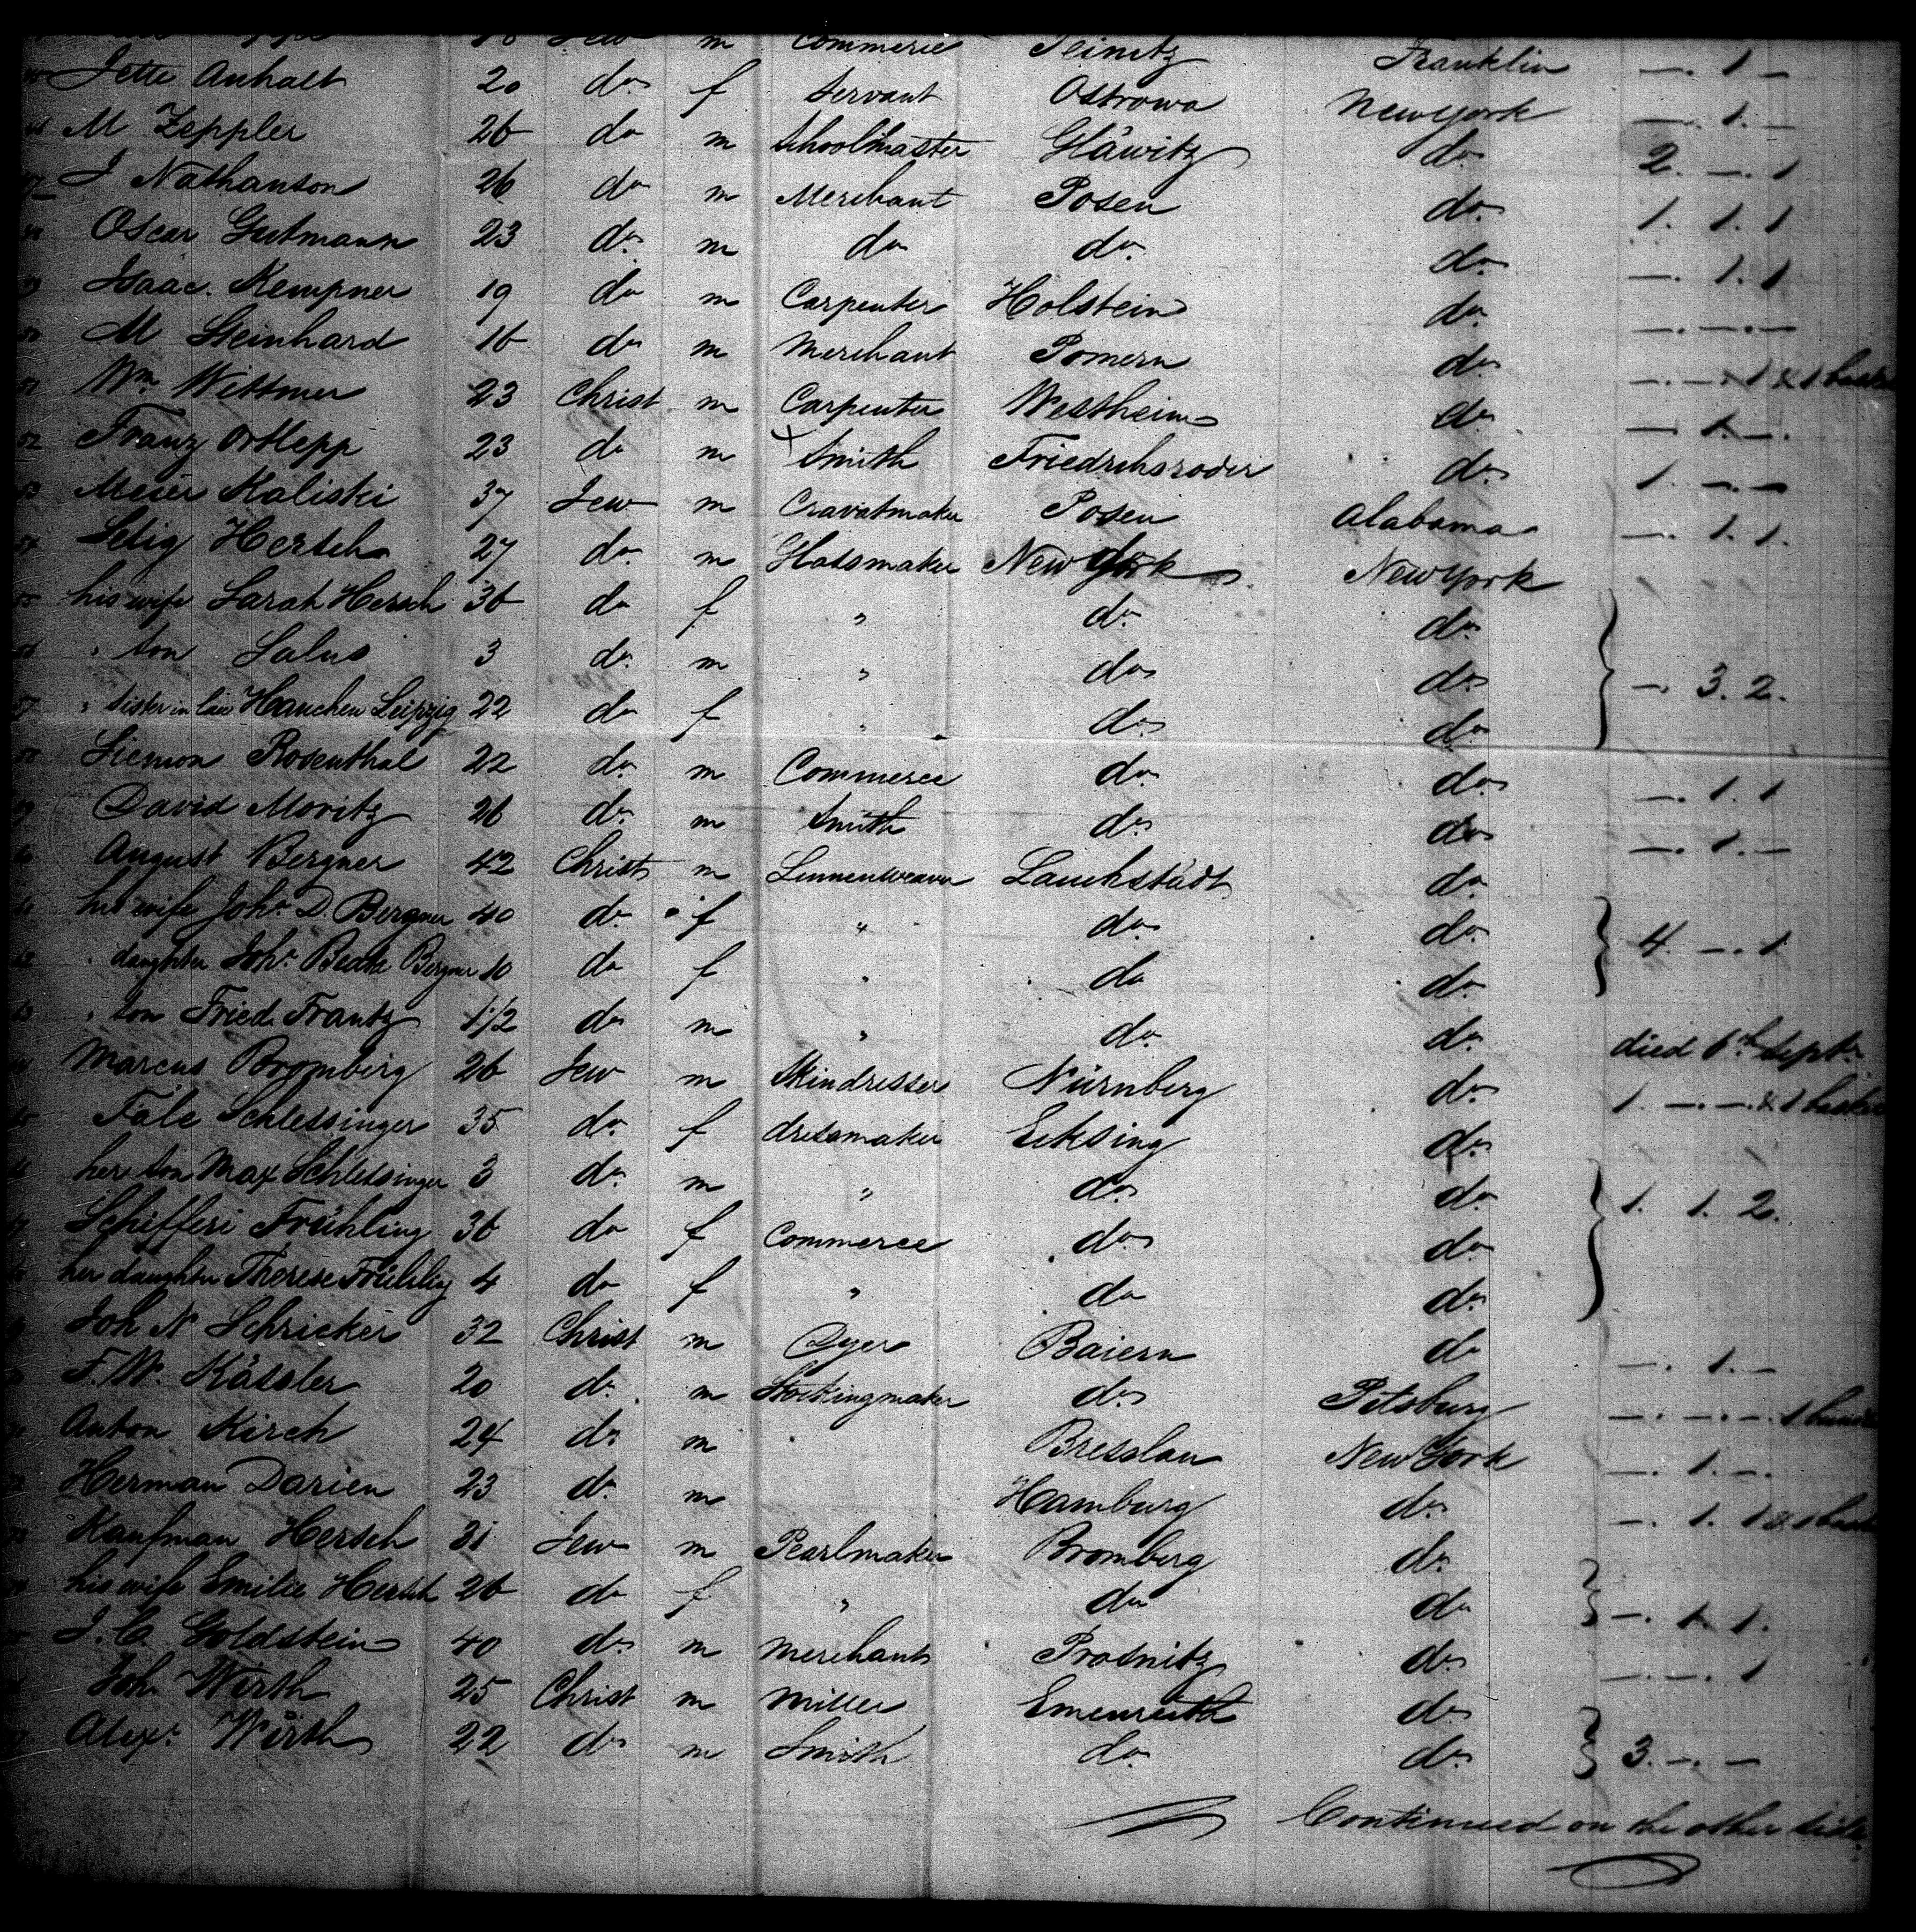 Jew m Commerce Franklin — . 1 —
Jette Anhalt 20 do f Servant Ostrowa New York — . 1. —
M Zeppler 26 do m Schoolmaster Gläwitz do 2. — . 1
J Nathanson 26 do m Merchant Posen do 1. 1. 1
Oscar Gutmann 23 do m do do. do — . 1. 1
Isaac. Kempner 19 do m Carpenter Holstein do — . — . —
M Steinhard 16 do m Merchant Pomern do — . — . 1 & 1
Wm Wittmer 23 Christ m Carpenter Westheim do — 1. — .
Franz Ortlepp 23 do m Smith Friedrichsroder do 1. — . —
Meier Kaliski 37 Jew m Cravatmaker Posen Alabama — . 1. 1.
Selig Hersch 27 do m Glassmaker New York New York
his wife Sarah Hersch 36 do f " do do
" son Salus 3 do m " do do — . 3. 2.
" sister in law Hanchen Leipzig 22 do f " do do
Siemon Rosenthal 22 do m Commerce do do — . 1. 1
David Moritz 26 do m Smith do do — . 1. —
August Bergner 42 Christ m Linnenweaver Lauchstädt do
his wife Joha D. Bergner 40 do f " do do 4. — . 1
" daughter Joha Beata Bergner 10 do f " do do
" son Fried. Frantz 1 1/2 do m " do do died 6th Septr
Marcus Bromberg 26 Jew m Skindresser Nürnberg do 1. — . — . & 1
Fale Schlessinger 35 do f dressmaker do
her son Max Schlessinger 3 do m " do do 1. 1. 2.
Frühling 36 do f Commerce do do
her daughter Therese Frühling 4 do f " do do
Joh N Schricker 32 Christ m Dyer Baiern do — . 1. —
F. W. Kässler 20 do m Stockingmaker do Pitsburg — . — . — . 1
Anton Kirch 24 do m Bresslau New York — . 1. — .
Herman Darien 23 do m Hamburg do — . 1. 1 & 1
Kaufman Hersch 31 Jew m Pearlmaker Bromberg do
his wife Emilie Hersch 26 do f " do do — . 1. 1.
J. C. Goldstein 40 do m Merchant Prosnitz do — . — . 1
Joh Wirth 25 Christ m Miller Emenreuth do
Alexr Wirth 22 do m Smith do do 3. — . —
Continued on the other side